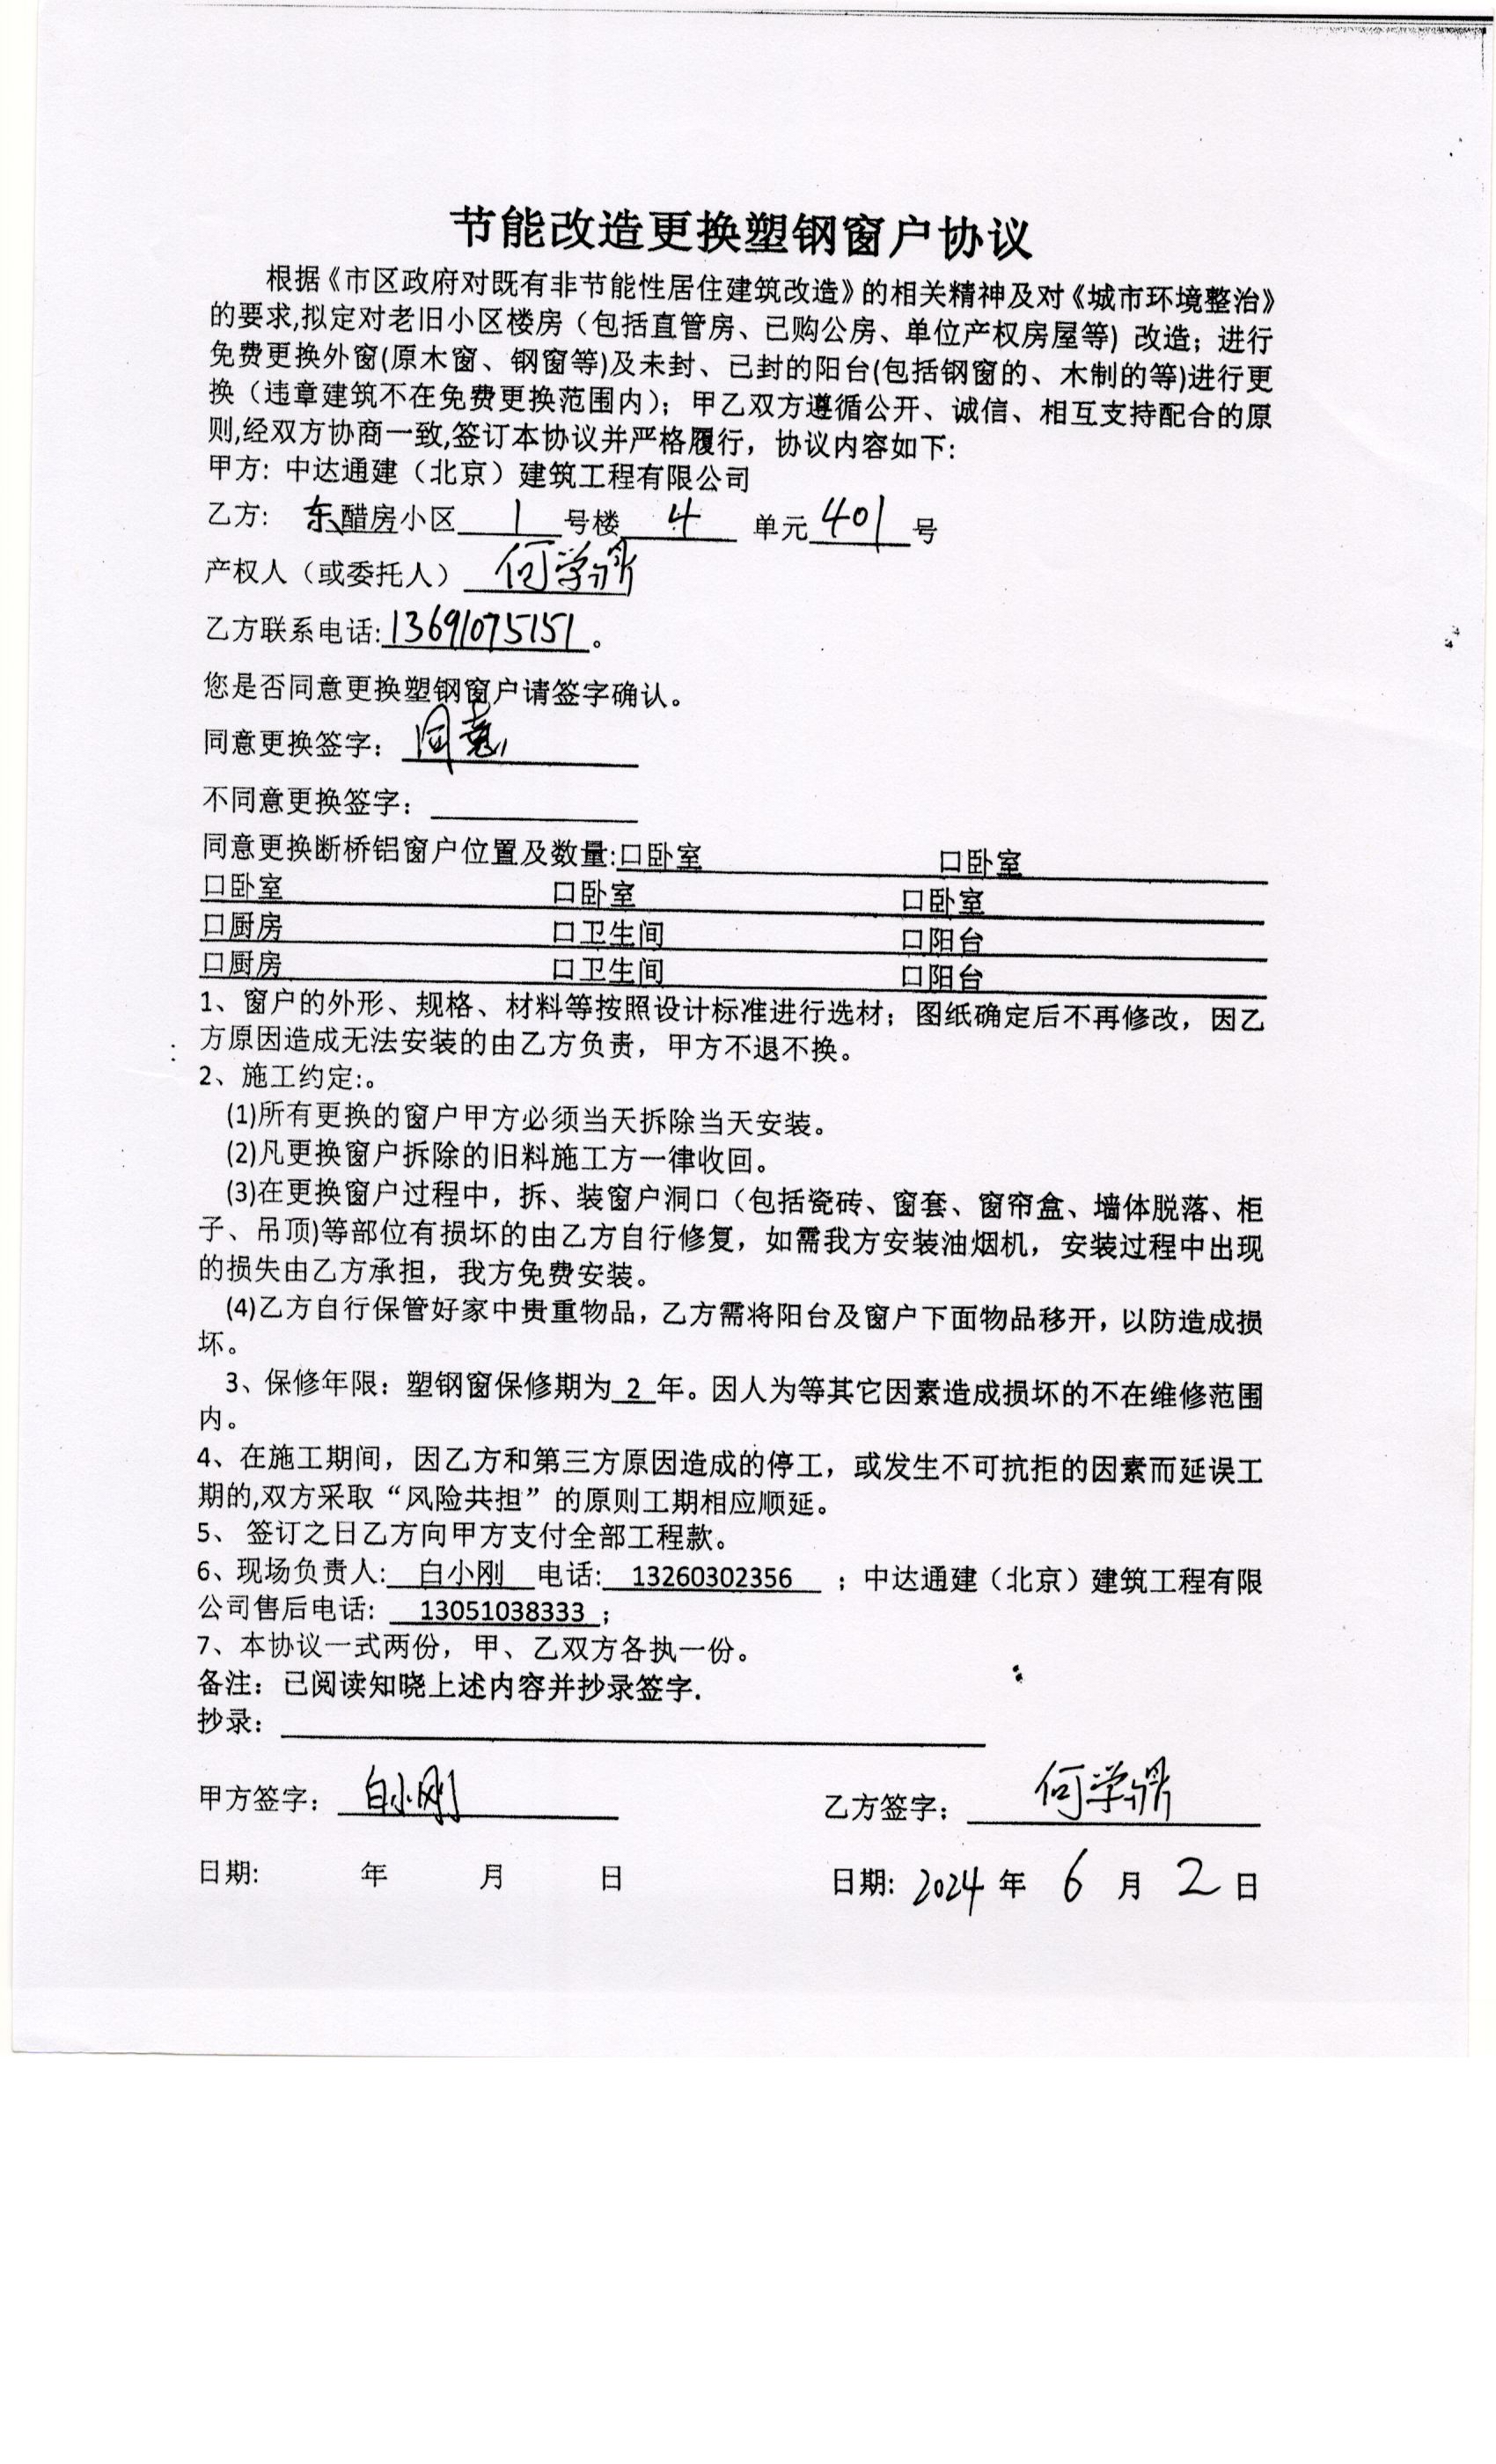 节能改造更换塑钢窗户协议
根据《市区政府对既有非节能性居住建筑改造》的相关精神及对《城市环境整治》
的要求,拟定对老旧小区楼房（包括直管房、已购公房、单位产权房屋等）改造；进行
免费更换外窗(原木窗、钢窗等)及未封、已封的阳台(包括钢窗的、木制的等)进行更
换（违章建筑不在免费更换范围内）；甲乙双方遵循公开、诚信、相互支持配合的原
则,经双方协商一致,签订本协议并严格履行，协议内容如下:
甲方: 中达通建（北京）建筑工程有限公司
乙方: 东醋房小区 1 号楼 4 单元 401 号
产权人（或委托人） 何学鼎
乙方联系电话:13691075151。
您是否同意更换塑钢窗户请签字确认。
同意更换签字： 同意
不同意更换签字：
同意更换断桥铝窗户位置及数量:口卧室 口卧室
口卧室 口卧室 口卧室
口厨房 口卫生间 口阳台
口厨房 口卫生间 口阳台
1、窗户的外形、规格、材料等按照设计标准进行选材；图纸确定后不再修改，因乙
方原因造成无法安装的由乙方负责，甲方不退不换。
2、施工约定:。
(1)所有更换的窗户甲方必须当天拆除当天安装。
(2)凡更换窗户拆除的旧料施工方一律收回。
(3)在更换窗户过程中，拆、装窗户洞口（包括瓷砖、窗套、窗帘盒、墙体脱落、柜
子、吊顶)等部位有损坏的由乙方自行修复，如需我方安装油烟机，安装过程中出现
的损失由乙方承担，我方免费安装。
(4)乙方自行保管好家中贵重物品，乙方需将阳台及窗户下面物品移开，以防造成损
坏。
3、保修年限：塑钢窗保修期为 2 年。因人为等其它因素造成损坏的不在维修范围
内。
4、在施工期间，因乙方和第三方原因造成的停工，或发生不可抗拒的因素而延误工
期的,双方采取“风险共担”的原则工期相应顺延。
5、 签订之日乙方向甲方支付全部工程款。
6、现场负责人: 白小刚 电话: 13260302356 ；中达通建（北京）建筑工程有限
公司售后电话: 13051038333 ；
7、本协议一式两份，甲、乙双方各执一份。
备注：已阅读知晓上述内容并抄录签字.
抄录：
甲方签字： 白小刚 乙方签字： 何学鼎
日期: 年 月 日 日期: 2024 年 6 月 2 日